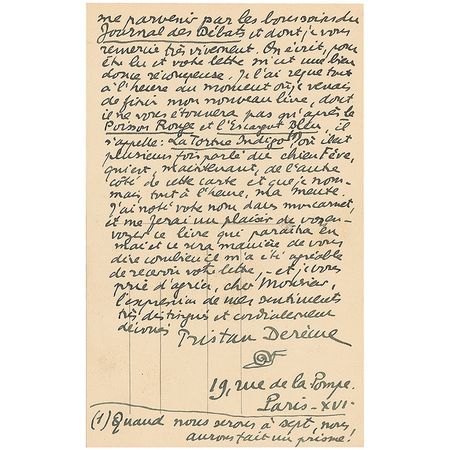 me parvenir par les bons soins du
Journal des Débats et dont je vous
remercie très vivement. On écrit, pour
être lu et votre lettre m'est une bien
douce récompense. Je l'ai reçue tout
à l'heure au moment où je venais
de finir mon nouveau livre, dont
il ne vous étonnera pas qu'après le
Poisson Rouge et l'Escargot Bleu, il
s'appelle: La Tortue Indigo (1) où il est
plusieurs fois parlé du chien Fève,
qui est, maintenant, de l'autre
côté de cette carte et que je nom-
mais, tout à l'heure, ma meute.
J'ai noté votre nom dans mon carnet,
et me ferai un plaisir de vous en-
voyer ce livre qui paraîtra en
mai et ce sera manière de vous
dire combien il m'a été agréable
de recevoir votre lettre, - et je vous
prie d'agréer, cher Monsieur,
l'expression de mes sentiments
très distingués et cordialement
dévoués
Tristan Derème
19, rue de la Pompe.
Paris - XVI.
(1) Quand nous serons à sept, nous
aurons fait un prisme!